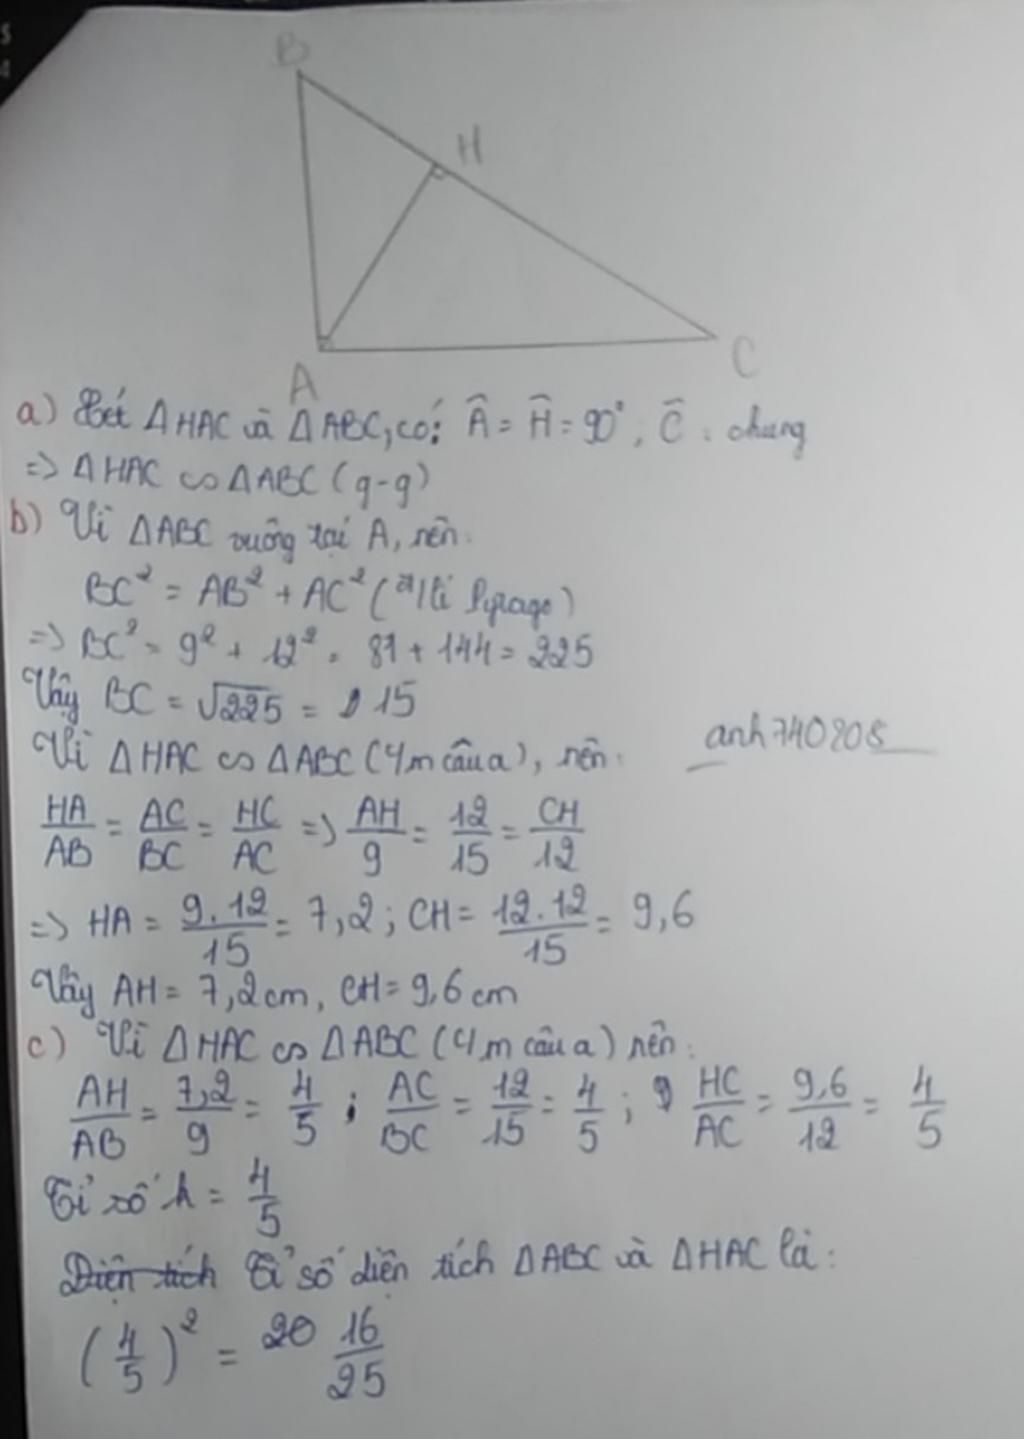 B
H
A
C
a) Xét ΔHAC và ΔABC, có: Â = Ĥ = 90°, Ĉ: chung
=> ΔHAC ∽ ΔABC (g-g)
b) Vì ΔABC vuông tại A, nên:
BC² = AB² + AC² (đ/lí Pytago)
=> BC² = 9² + 12² = 81 + 144 = 225
Vậy BC = √225 = 15
Vì ΔHAC ∽ ΔABC (c/m câu a), nên:
anh740205
HA/AB = AC/BC = HC/AC => AH/9 = 12/15 = CH/12
=> HA = 9.12/15 = 7,2; CH = 12.12/15 = 9,6
Vậy AH = 7,2cm, CH = 9,6cm
c) Vì ΔHAC ∽ ΔABC (c/m câu a) nên:
AH/AB = 7,2/9 = 4/5; AC/BC = 12/15 = 4/5; HC/AC = 9,6/12 = 4/5
Tỉ số k = 4/5
Diện tích Tỉ số diện tích ΔABC và ΔHAC là:
(4/5)² = 20 16/25